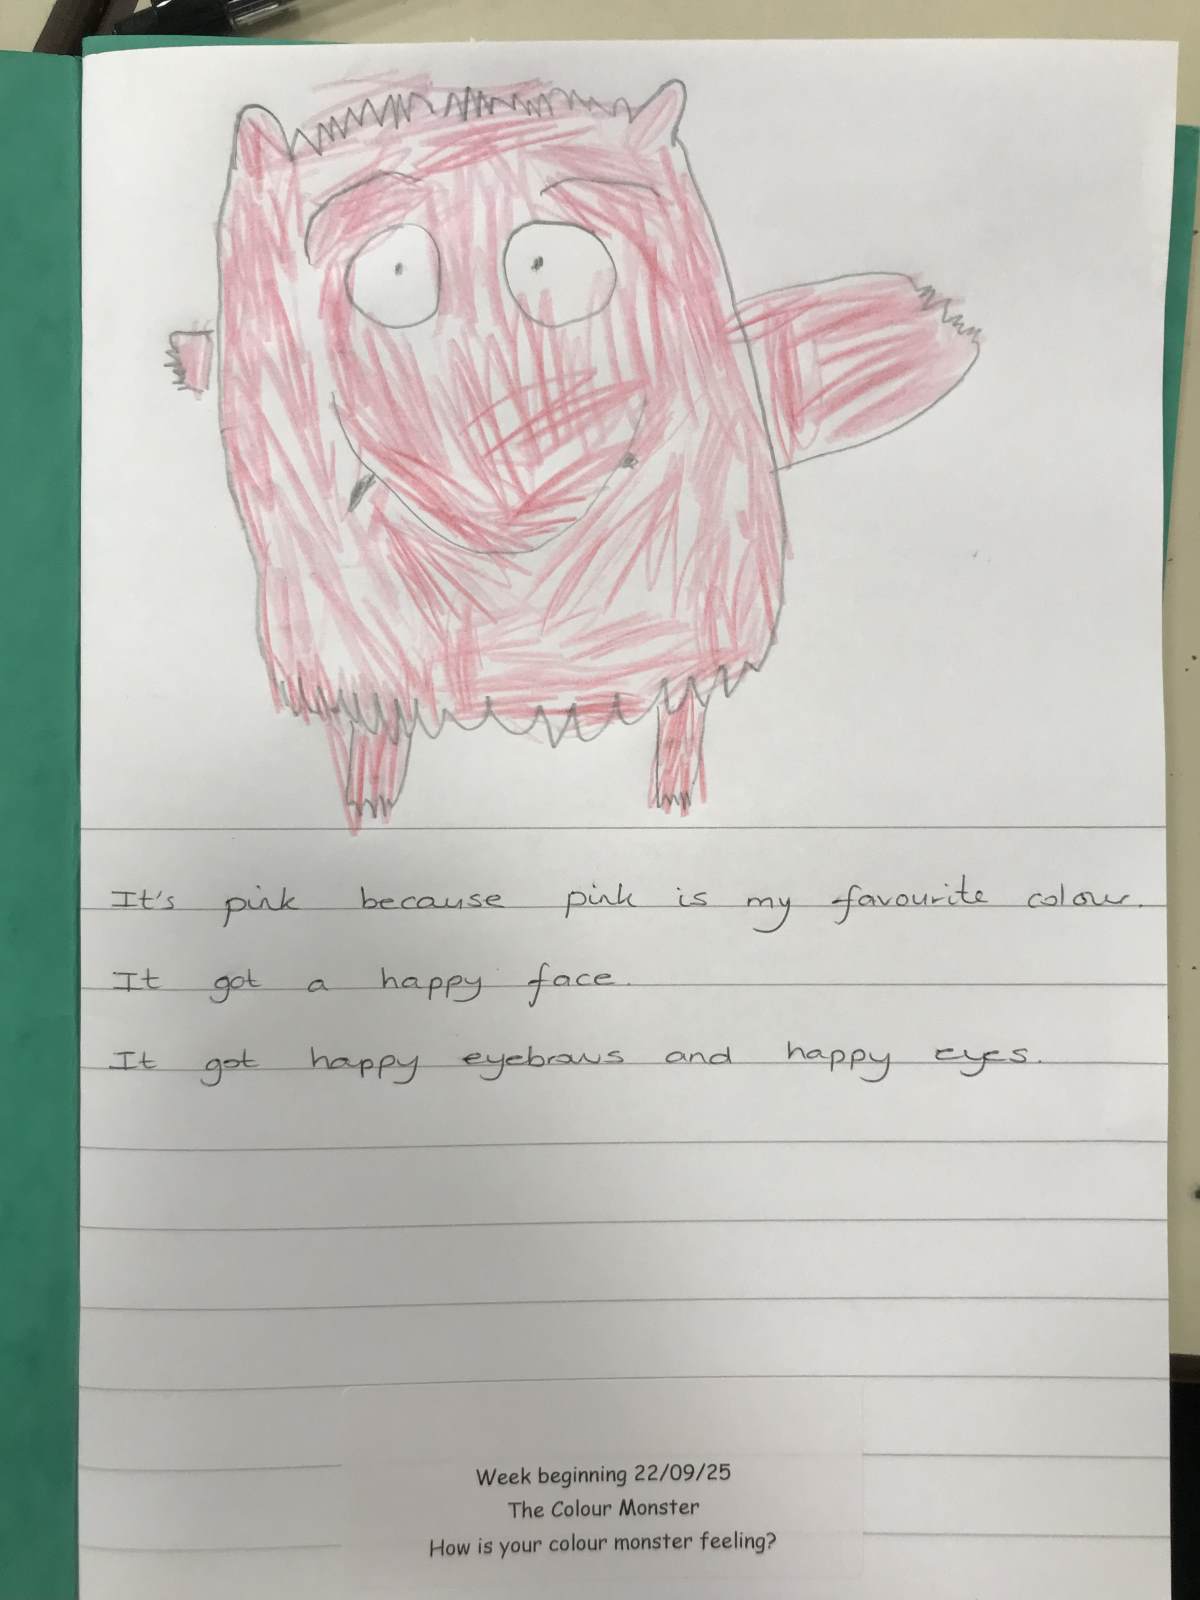 It's pink because pink is my favourite colour.
It got a happy face.
It got happy eyebrows and happy eyes.
Week beginning 22/09/25
The Colour Monster
How is your colour monster feeling?